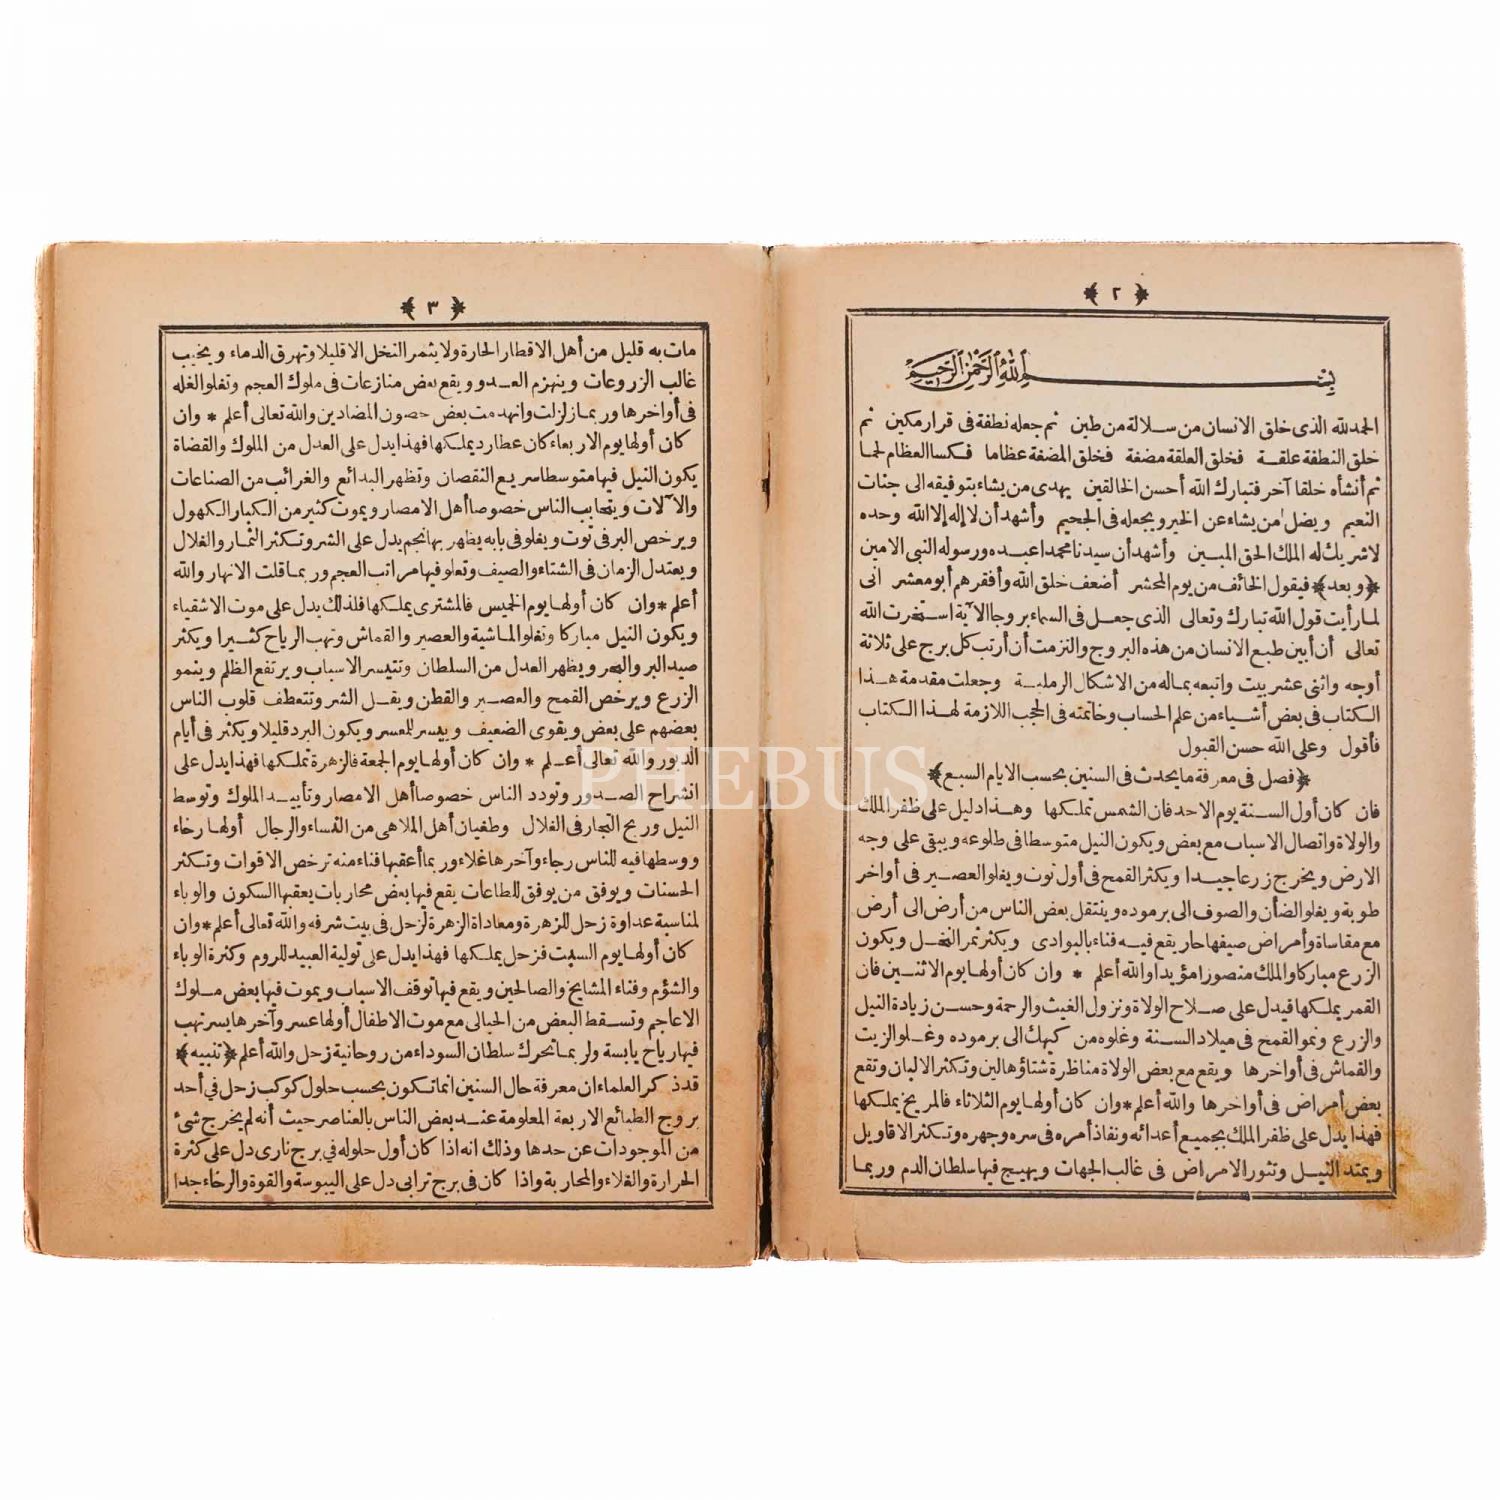 ﴿ ٢ ﴾
بسم الله الرحمن الرحيم
الحمد لله الذى خلق الانسان من سلالة من طين ثم جعله نطفة فى قرار مكين ثم
خلق النطفة علقة فخلق العلقة مضغة فخلق المضغة عظاما فكسا العظام لحما
ثم أنشأه خلقا آخر فتبارك الله أحسن الخالقين يهدى من يشاء بتوفيقه الى جنات
النعيم ويضل من يشاء عن الخير ويجعله فى الجحيم وأشهد أن لا إله إلا الله وحده
لا شريك له الملك الحق المبين وأشهد أن سيدنا محمدا عبده ورسوله النبى الامين
﴿وبعد﴾ فيقول الخائف من يوم المحشر أضعف خلق الله وأفقرهم أبو معشر انى
لما رأيت قول الله تبارك وتعالى الذى جعل فى السماء بروجا الآية استخرت الله
تعالى أن أبين طبع الانسان من هذه البروج والتزمت أن أرتب كل برج على ثلاثة
أوجه واثنى عشر بيت واتبعه بماله من الاشكال الرملية وجعلت مقدمة هذا
الكتاب فى بعض أشياء من علم الحساب وخاتمته فى الحجب اللازمة لهذا الكتاب
فأقول وعلى الله حسن القبول
﴿فصل فى معرفة ما يحدث فى السنين بحسب الايام السبع﴾
فان كان أول السنة يوم الاحد فان الشمس تملكها وهذا دليل على ظفر الملك
والولاة واتصال الاسباب مع بعض ويكون النيل متوسطا فى طلوعه ويبقى على وجه
الارض ويخرج زرعا جيدا ويكثر القمح فى أول توت ويغلو العصير فى أواخر
طوبة ويغلو الضأن والصوف الى برموده وينتقل بعض الناس من أرض الى أرض
مع مقاساة وأمراض صيفها حار يقع فيه فناء بالبوادى ويكثر تمر النخل ويكون
الزرع مباركا والملك منصورا مؤيدا والله أعلم * وان كان أولها يوم الاثنين فان
القمر يملكها فيدل على صلاح الولاة ونزول الغيث والرحمة وحسن زيادة النيل
والزرع ونمو القمح فى ميلاد السنة وغلوه من كيهك الى برموده وغلو الزيت
والقماش فى أواخرها ويقع مع بعض الولاة مناظرة شتاؤها لين وتكثر الالبان وتقع
بعض أمراض فى أواخرها والله أعلم * وان كان أولها يوم الثلاثاء فالمريخ يملكها
فهذا يدل على ظفر الملك بجميع أعدائه ونفاذ أمره فى سره وجهره وتكثر الاقاويل
ويمتد النيل وتثور الامراض فى غالب الجهات ويهيج فيها سلطان الدم وربما
﴿ ٣ ﴾
مات به قليل من أهل الاقطار الحارة ولا يثمر النخل الا قليلا وتهرق الدماء ويخيب
غالب الزروعات وينهزم العدو ويقع بعض منازعات فى ملوك العجم وتغلو الغله
فى أواخرها وربما زلزلت وانهدمت بعض حصون المضادين والله تعالى أعلم * وان
كان أولها يوم الاربعاء كان عطارد يملكها فهذا يدل على العدل من الملوك والقضاة
يكون النيل فيها متوسطا سريع النقصان وتظهر البدائع والغرائب من الصناعات
والآلات ويتحابب الناس خصوصا أهل الامصار ويموت كثير من الكبار الكهول
ويرخص البر فى توت ويغلو فى بابه يظهر بها نجم يدل على الشر وتكثر الثمار والغلال
ويعتدل الزمان فى الشتاء والصيف وتعلو فيها مراتب العجم وربما قلت الانهار والله
أعلم * وان كان أولها يوم الخميس فالمشترى يملكها فلذلك يدل على موت الاشقياء
ويكون النيل مباركا وتغلو الماشية والعصير والقماش وتهب الرياح كثيرا ويكثر
صيد البر والبحر ويظهر العدل من السلطان وتتيسر الاسباب ويرتفع الظلم وينمو
الزرع ويرخص القمح والعصير والقطن ويقل الشر وتتعطف قلوب الناس
بعضهم على بعض ويقوى الضعيف وييسر للمعسر ويكون البرد قليلا ويكثر فى أيام
الدبور والله تعالى أعلم * وان كان أولها يوم الجمعة فالزهرة تملكها فهذا يدل على
انشراح الصدور وتودد الناس خصوصا أهل الامصار وتأييد الملوك وتوسط
النيل وربح التجار فى الغلال وطغيان أهل الملاهى من النساء والرجال أولها رخاء
ووسطها فيه للناس رجاء وآخرها غلاء وربما أعقبها فناء منه ترخص الاقوات وتكثر
الحسنات ويوفق من يوفق للطاعات يقع فيها بعض محاربات يعقبها السكون والوباء
لمناسبة عداوة زحل للزهرة ومعاداة الزهرة لزحل فى بيت شرفه والله تعالى أعلم * وان
كان أولها يوم السبت فزحل يملكها فهذا يدل على تولية العبيد للروم وكثرة الوباء
والشؤم وفناء المشايخ والصالحين ويقع فيها توقف الاسباب ويموت فيها بعض ملوك
الاعاجم وتسقط البعض من الحبالى مع موت الاطفال أولها عسر وآخرها يسر تهب
فيها رياح يابسة ولربما تحرك سلطان السوداء من روحانية زحل والله أعلم ﴿تنبيه﴾
قد ذكر العلماء ان معرفة حال السنين انما تكون بحسب حلول كوكب زحل في أحد
بروج الطبائع الاربعة المعلومة عند بعض الناس بالعناصر حيث أنه لم يخرج شئ
من الموجودات عن حدها وذلك انه اذا كان أول حلوله في برج نارى دل على كثرة
الحرارة والغلاء والمحاربة واذا كان فى برج ترابى دل على اليبوسة والقوة والرخاء جدا
PHEBUS